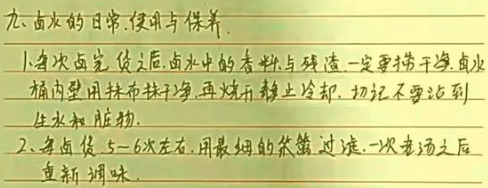 九、卤水的日常.使用与保养.
1.每次卤完货之后.卤水中的香料与残渣.一定要捞干净.卤水
桶内壁用抹布抹干净.再烧开静止冷却.切记不要沾到
生水和脏物.
2、每卤货5~6次左右.用最细的筛篱过滤.一次老汤之后
重新调味.